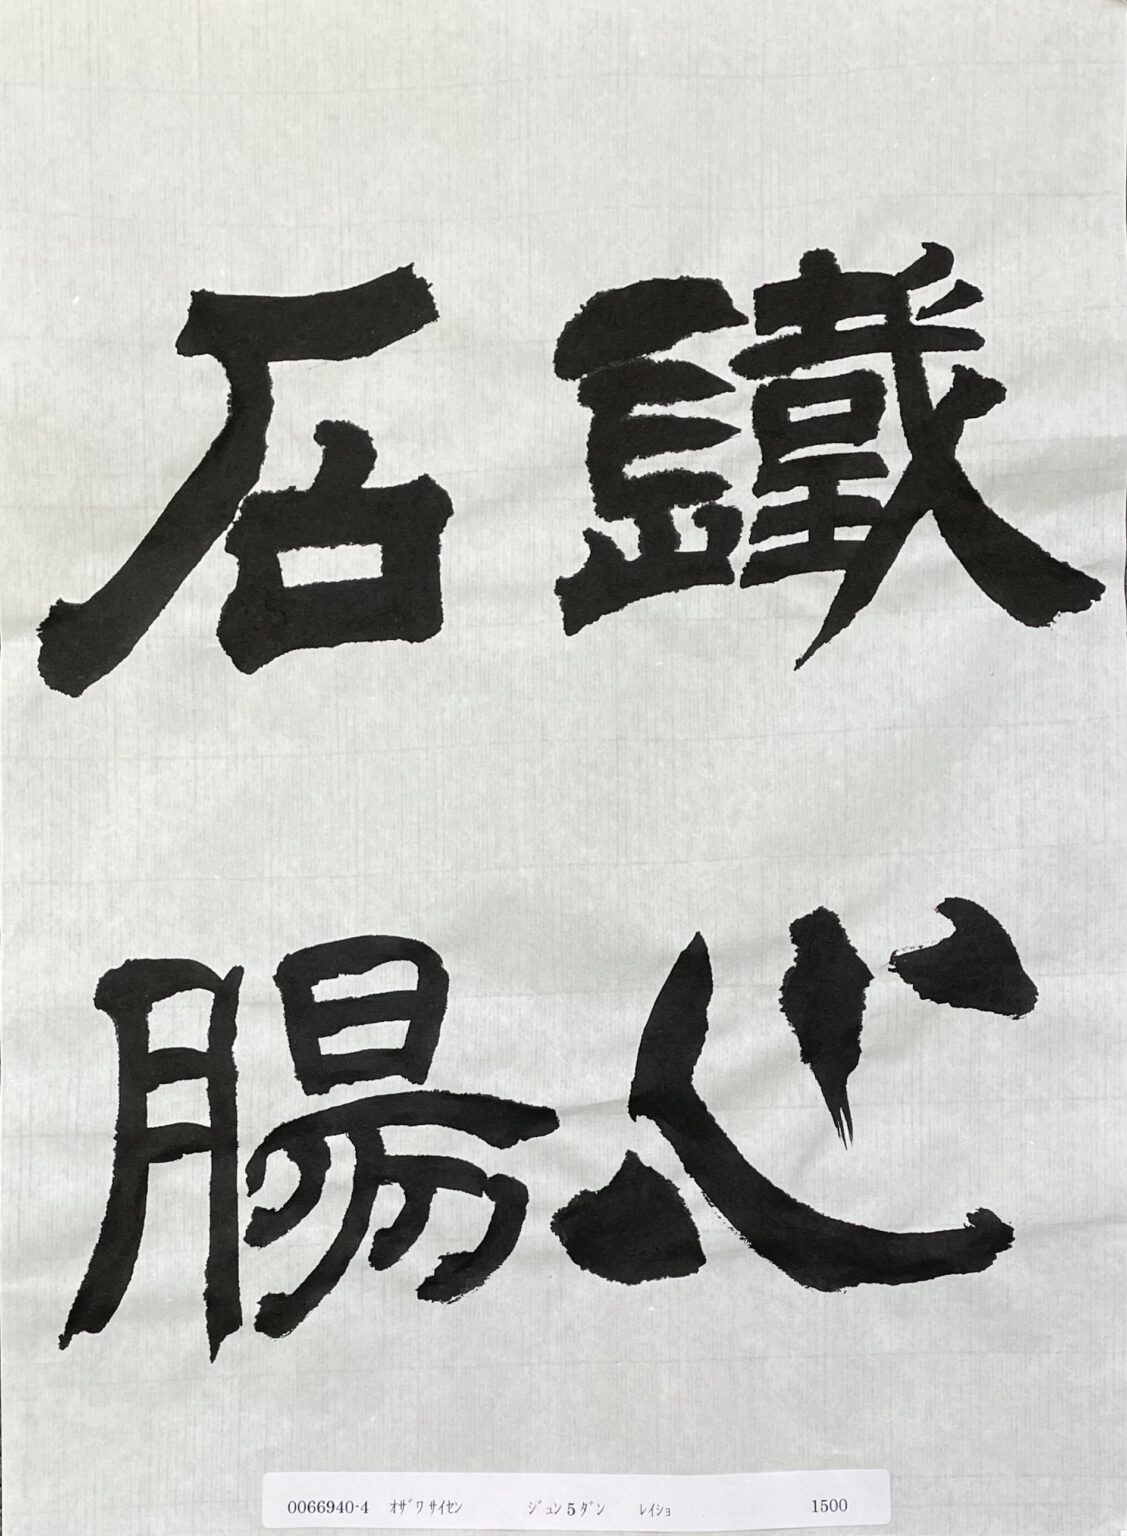 鐵心
石腸
0066940-4 ｵｻﾞﾜ ｻｲｾﾝ ｼﾞｭﾝ 5 ﾀﾞﾝ ﾚｲｼｮ 1500